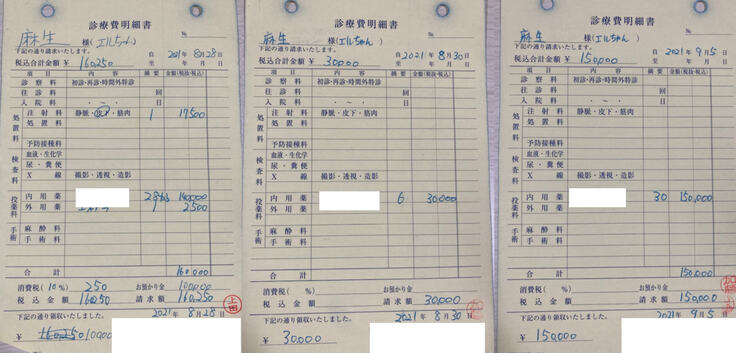 診療費明細書
№
麻生 様(エルちゃん)
下記の通り請求いたします。
自 2021年8月28日
税込合計金額 ¥160,250
至 年 月 日
項目 内容 摘要 金額(税抜・税込)
診察料 初診・再診・時間外特診
往診料 回
入院料 ・ ~ ・ 日
処置料 注射料 静脈・皮下・筋肉 1 17500
処置料
予防接種料
検査料 血液・生化学
尿・糞便
X線 撮影・透視・造影
投薬料 内用薬 140,000
外用薬 1 2500
手術 麻酔料
手術料
合計 160,000
消費税(10%) 250 お預かり金 100,000
税込金額 160,250 請求額 160,250
下記の通り領収いたしました。 2021年8月28日
上田
¥ 160,250 100,000
診療費明細書
№
麻生 様(エルちゃん)
下記の通り請求いたします。
自 2021年8月30日
税込合計金額 ¥30,000
至 年 月 日
項目 内容 摘要 金額(税抜・税込)
診察料 初診・再診・時間外特診
往診料 回
入院料 ・ ~ ・ 日
処置料 注射料 静脈・皮下・筋肉
処置料
予防接種料
検査料 血液・生化学
尿・糞便
X線 撮影・透視・造影
投薬料 内用薬 6 30,000
外用薬
手術 麻酔料
手術料
合計
消費税( %) お預かり金
税込金額 請求額 30,000
下記の通り領収いたしました。 2021年8月30日
¥ 30,000
診療費明細書
№
麻生 様(エルちゃん)
下記の通り請求いたします。
自 2021年9月5日
税込合計金額 ¥150,000
至 年 月 日
項目 内容 摘要 金額(税抜・税込)
診察料 初診・再診・時間外特診
往診料 回
入院料 ・ ~ ・ 日
処置料 注射料 静脈・皮下・筋肉
処置料
予防接種料
検査料 血液・生化学
尿・糞便
X線 撮影・透視・造影
投薬料 内用薬 30 150,000
外用薬
手術 麻酔料
手術料
合計 150,000
消費税( %) お預かり金
税込金額 請求額 150,000
下記の通り領収いたしました。 2021年9月5日
¥ 150,000